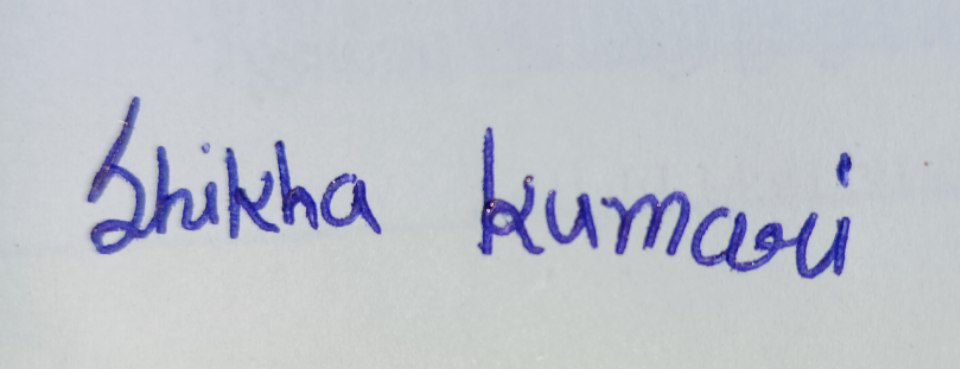 Shikha kumari